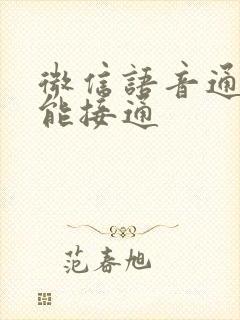 微信語音通
能接通
范春旭